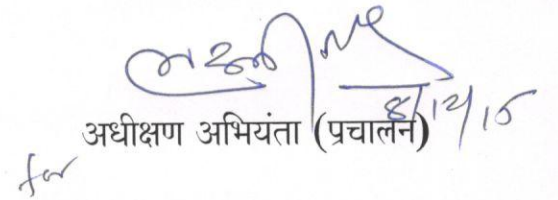 8/12/15
अधीक्षण अभियंता (प्रचालन)
for